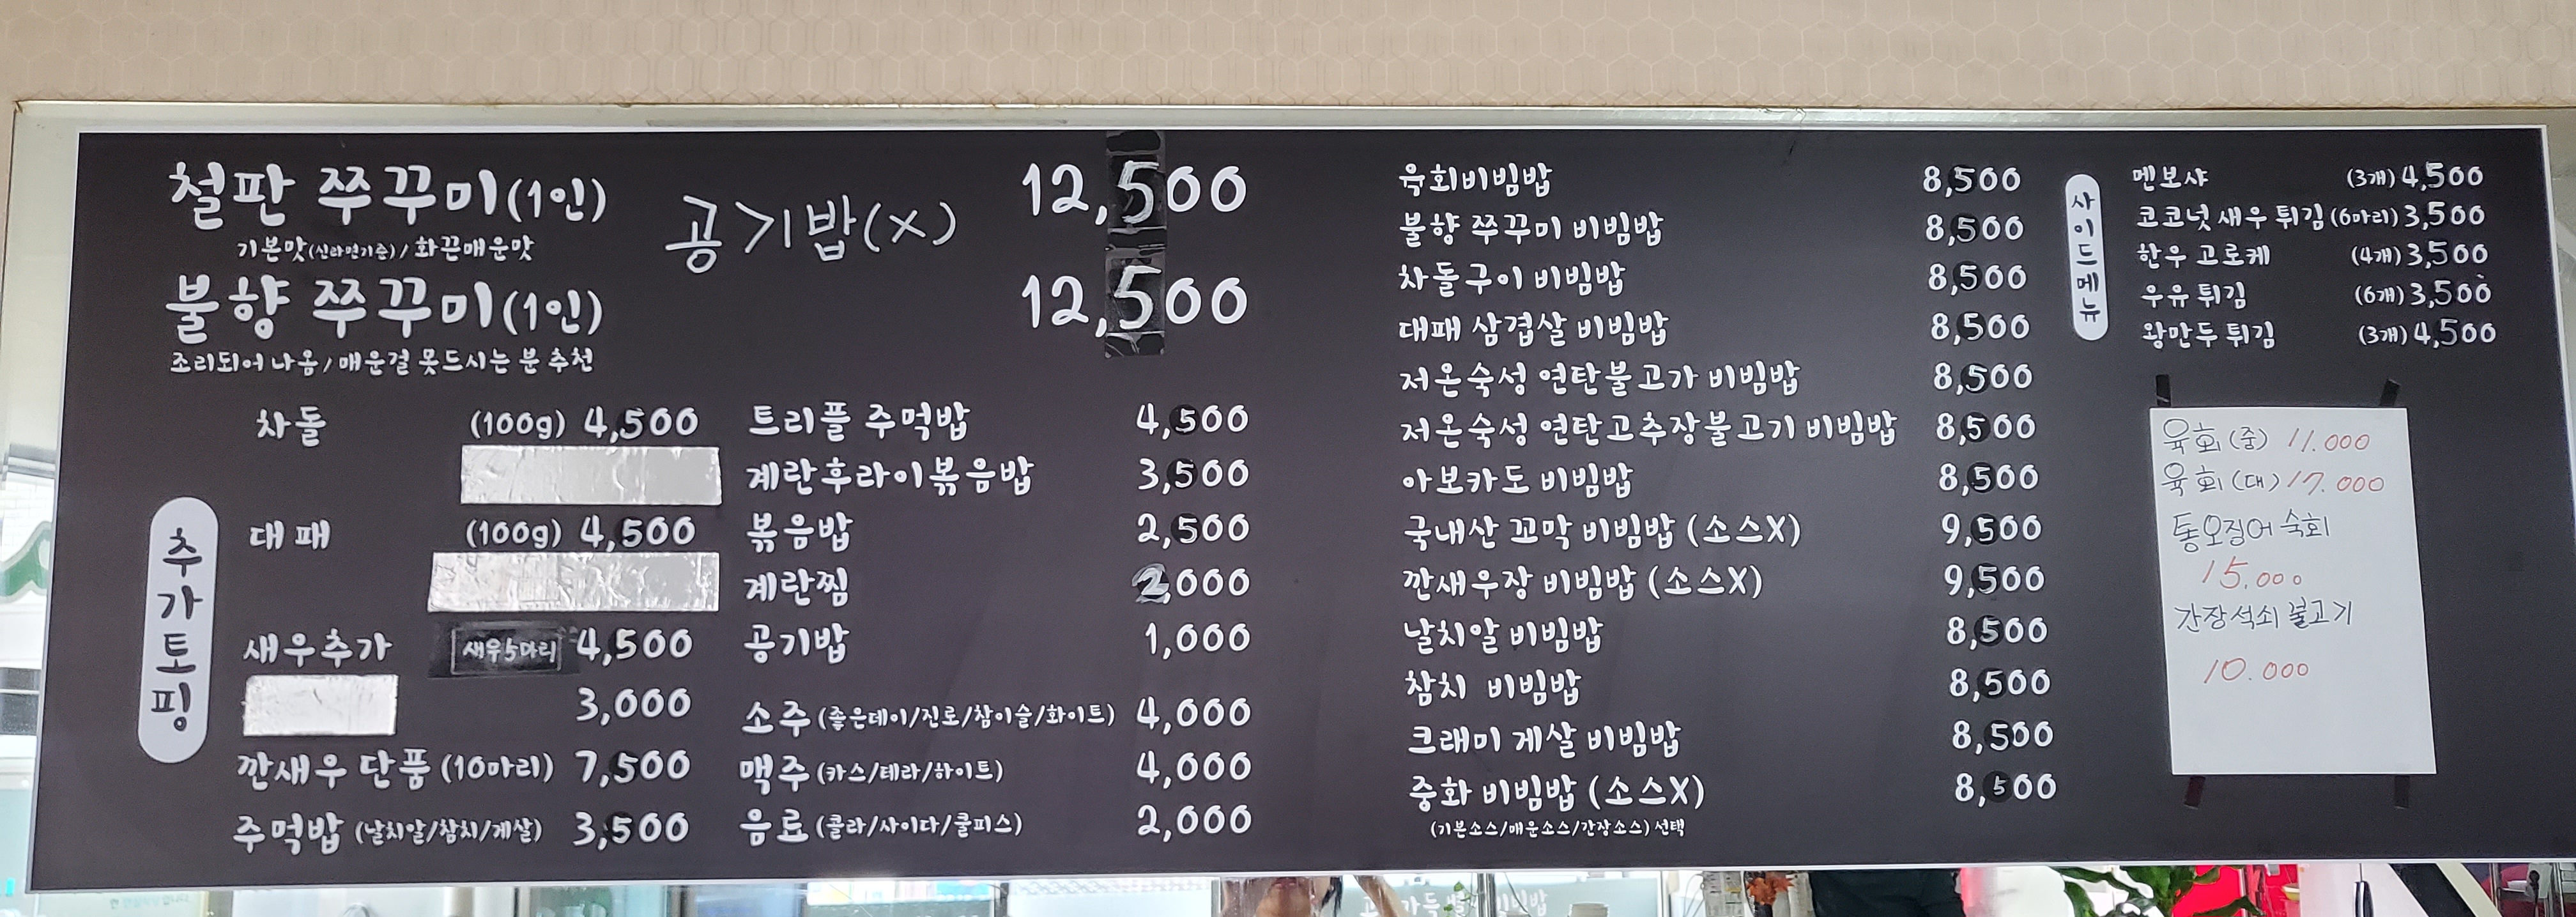 철판 쭈꾸미(1인) 12,500
기본맛(신라면기준)/화끈매운맛
공기밥(x)
불향 쭈꾸미(1인) 12,500
조리되어 나옴/매운걸 못드시는 분 추천
추가토핑
차돌 (100g) 4,500
대패 (100g) 4,500
새우추가 새우5마리 4,500
3,000
깐새우 단품 (10마리) 7,500
주먹밥 (날치알/참치/게살) 3,500
트리플 주먹밥 4,500
계란후라이볶음밥 3,500
볶음밥 2,500
계란찜 2,000
공기밥 1,000
소주 (좋은데이/진로/참이슬/화이트) 4,000
맥주 (카스/테라/하이트) 4,000
음료 (콜라/사이다/쿨피스) 2,000
육회비빔밥 8,500
불향 쭈꾸미 비빔밥 8,500
차돌구이 비빔밥 8,500
대패 삼겹살 비빔밥 8,500
저온숙성 연탄불고기 비빔밥 8,500
저온숙성 연탄고추장불고기 비빔밥 8,500
아보카도 비빔밥 8,500
국내산 꼬막 비빔밥 (소스X) 9,500
깐새우장 비빔밥 (소스X) 9,500
날치알 비빔밥 8,500
참치 비빔밥 8,500
크래미 게살 비빔밥 8,500
중화 비빔밥 (소스X) 8,500
(기본소스/매운소스/간장소스) 선택
사이드메뉴
멘보샤 (3개) 4,500
코코넛 새우 튀김 (6마리) 3,500
한우 고로케 (4개) 3,500
우유 튀김 (6개) 3,500
왕만두 튀김 (3개) 4,500
육회(중) 11.000
육회(대) 17.000
통오징어 숙회
15.000
간장석쇠 불고기
10.000